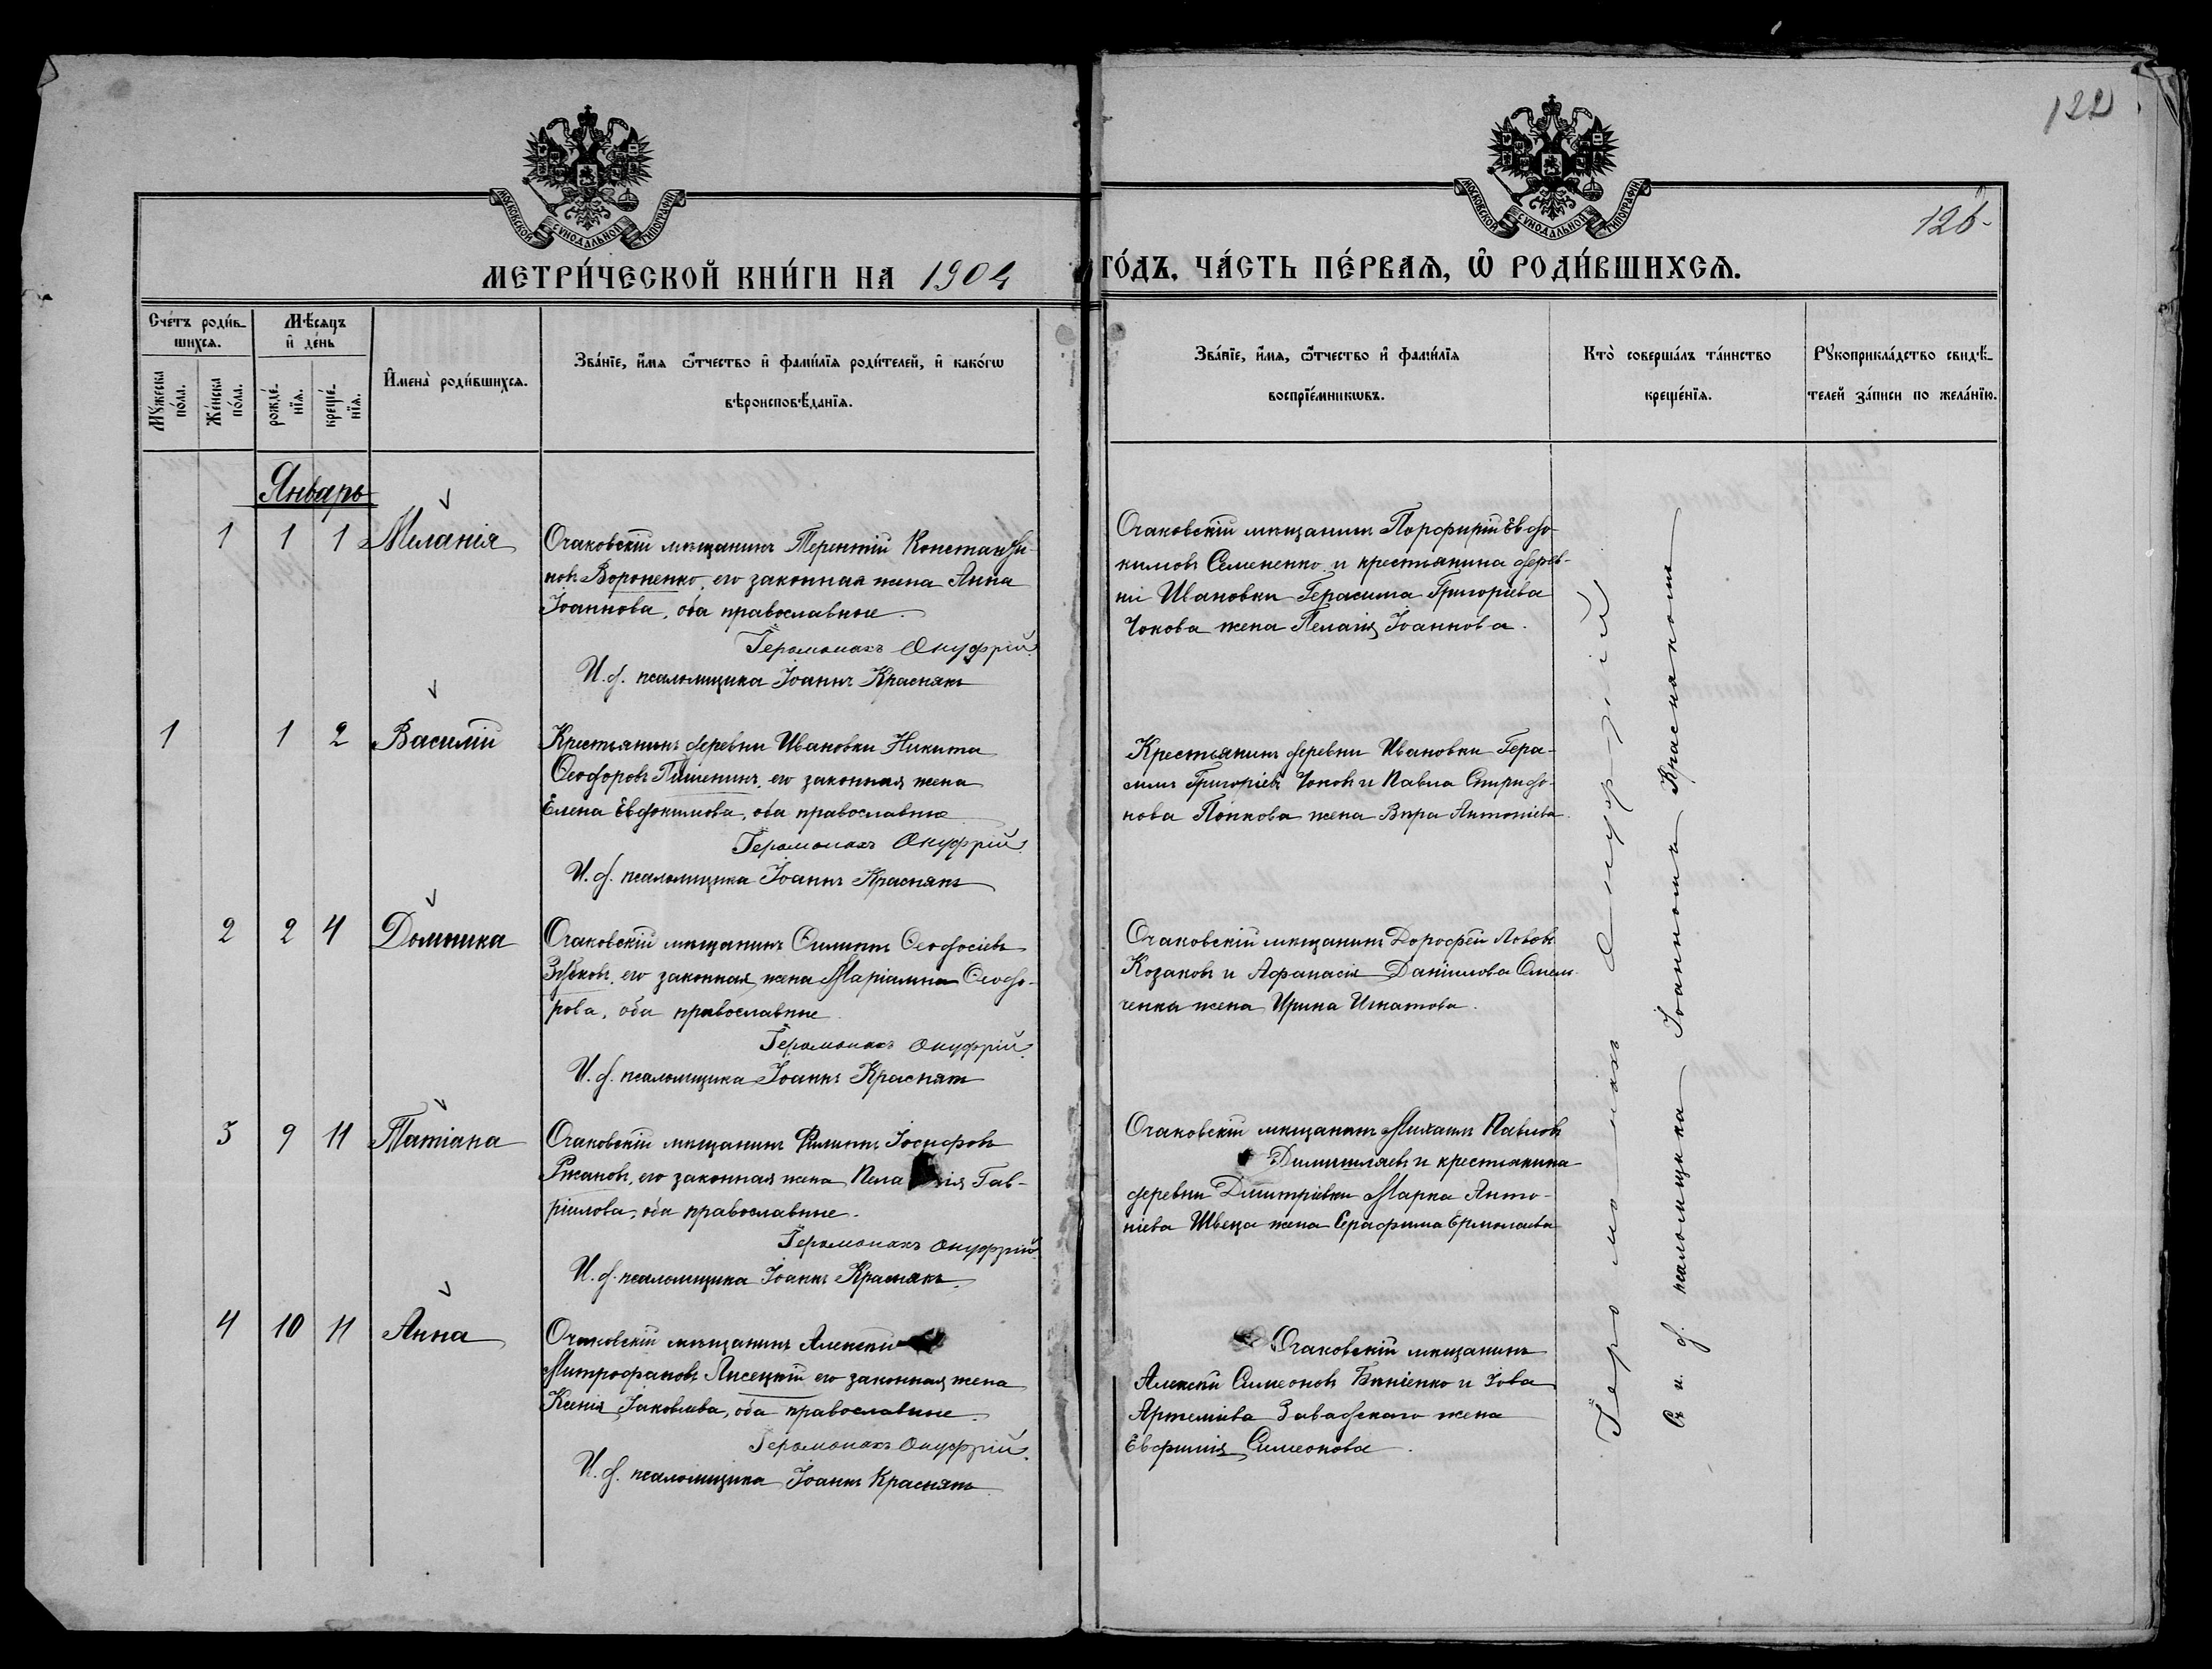 122
126
МОСКОВСКОЙ СѴНОДАЛЬНОЙ ТИПОГРАФІИ.
МОСКОВСКОЙ СѴНОДАЛЬНОЙ ТИПОГРАФІИ.
МЕТРИ́ЧЕСКОЙ КНИ́ГИ НА 1904 ГО́ДЪ, ЧА́СТЬ ПЕ́РВАѦ, Ѽ РОДИ́ВШИХСѦ.
Сче́тъ роди́в-
шихсѧ.
Мꙋжеска
по́ла.
Же́нска
по́ла.
Мѣ́сѧцъ
и҆ де́нь
рожде́-
нїѧ.
креще́-
нїѧ.
И҆мена̀ роди́вшихсѧ.
Зва́нїе, и҆́мѧ ѻ҆́тчество и҆ фамилїѧ роди́телей, и҆ како́гѡ
вѣроисповѣ́данїѧ.
Зва́нїе, и҆́мѧ, ѻ҆́тчество и҆ фамилїѧ
воспрїе́мникѡвъ.
Кто̀ соверша́лъ та́инство
креще́нїѧ.
Рꙋкоприкла́дство свидѣ́-
телей за́писи по жела́нїю.
Январь
1 1 1 Меланія
Очаковскій мѣщанинъ Терентій Константи-
новъ Вороненко, его законная жена Анна
Іоаннова, оба православные.
Іеромонахъ Онуфрій.
И. д. псаломщика Іоаннъ Краснякъ
Очаковскій мѣщанинъ Порфирій Евдо-
кимовъ Семененко и крестьянина дерев-
ни Ивановки Герасима Григоріева
Чокова жена Пелагія Іоаннова.
1 1 2 Василій
Крестьянинъ деревни Ивановки Никита
Ѳеодоровъ Пишенинъ, его законная жена
Елена Евдокимова, оба православные
Іеромонахъ Онуфрій.
И. д. псаломщика Іоаннъ Краснякъ
Крестьянинъ деревни Ивановки Гера-
симъ Григоріевъ Чоковъ и Павла Спиридо-
нова Попкова жена Вѣра Антоніева.
2 2 4 Домника
Очаковскій мѣщанинъ Филиппъ Ѳеодосіевъ
его законная жена Маріамна Ѳеодо-
рова, оба православные
Іеромонахъ Онуфрій.
И. д. псаломщика Іоаннъ Краснякъ
Очаковскій мѣщанинъ Дорофей Львовъ
Козаковъ и Аѳанасія Даніилова Омель-
ченка жена Ирина Игнатова.
3 9 11 Татіана
Очаковскій мѣщанинъ Филиппъ Іосифовъ
Ржановъ, его законная жена Пелагія Гав-
ріилова, оба православные.
Іеромонахъ Онуфрій
И. д. псаломщика Іоаннъ Краснякъ.
Очаковскій мѣщанинъ Михаилъ Павловъ
и крестьянина
деревни Дмитріевки Марка Анто-
ніева Швеца жена Серафима Ермолаева
4 10 11 Анна
Очаковскій мѣщанинъ Алексій
Митрофановъ Лисецкій его законная жена
Ксенія Іаковлева, оба православные.
Іеромонахъ Онуфрій.
И. д. псаломщика Іоаннъ Краснякъ
Очаковскій мѣщанинъ
Алексій Симеоновъ и Іова
Артеміева Завадскаго жена
Евфимія Симеонова.
Іеромонахъ Онуфрій
Съ и. д. псаломщика Іоанномъ Краснякомъ